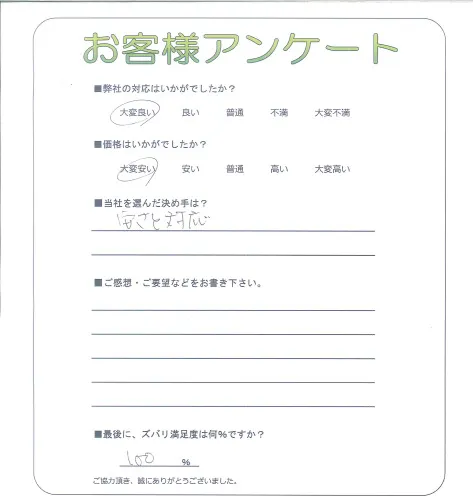 お客様アンケート
■弊社の対応はいかがでしたか?
大変良い 良い 普通 不満 大変不満
■価格はいかがでしたか?
大変安い 安い 普通 高い 大変高い
■当社を選んだ決め手は?
安さと対応
■ご感想・ご要望などをお書き下さい。
■最後に、ズバリ満足度は何%ですか?
100 %
ご協力頂き、誠にありがとうございました。